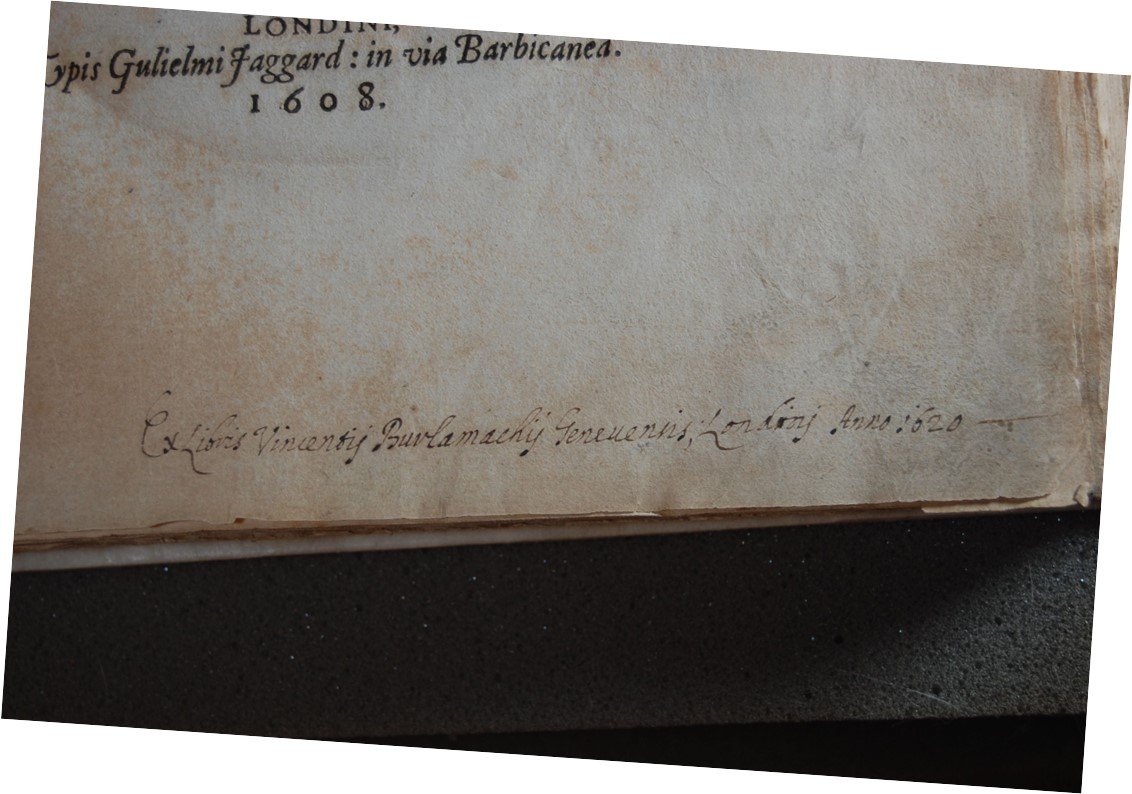 LONDINI,
Typis Gulielmi Jaggard : in via Barbicanea.
1608.
Ex Libris Vincentij Burlamachij Geneuensis, Londinij Anno 1620